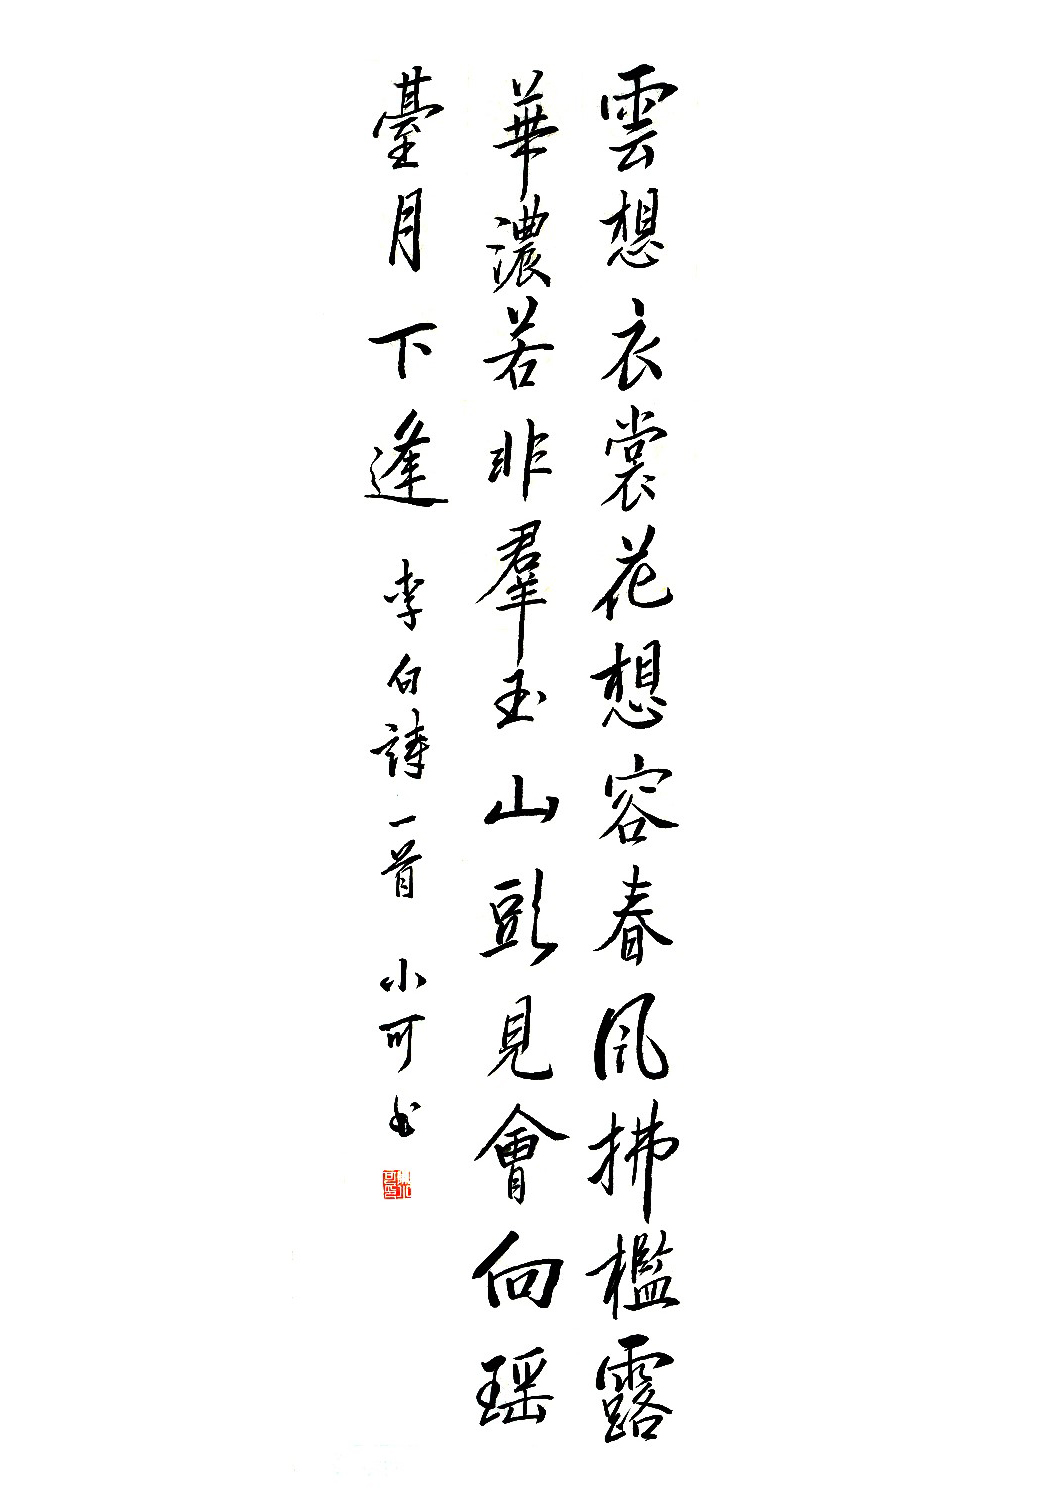 雲想衣裳花想容春風拂檻露
華濃若非羣玉山頭見會向瑶
臺月下逢 李白詩一首 小可书